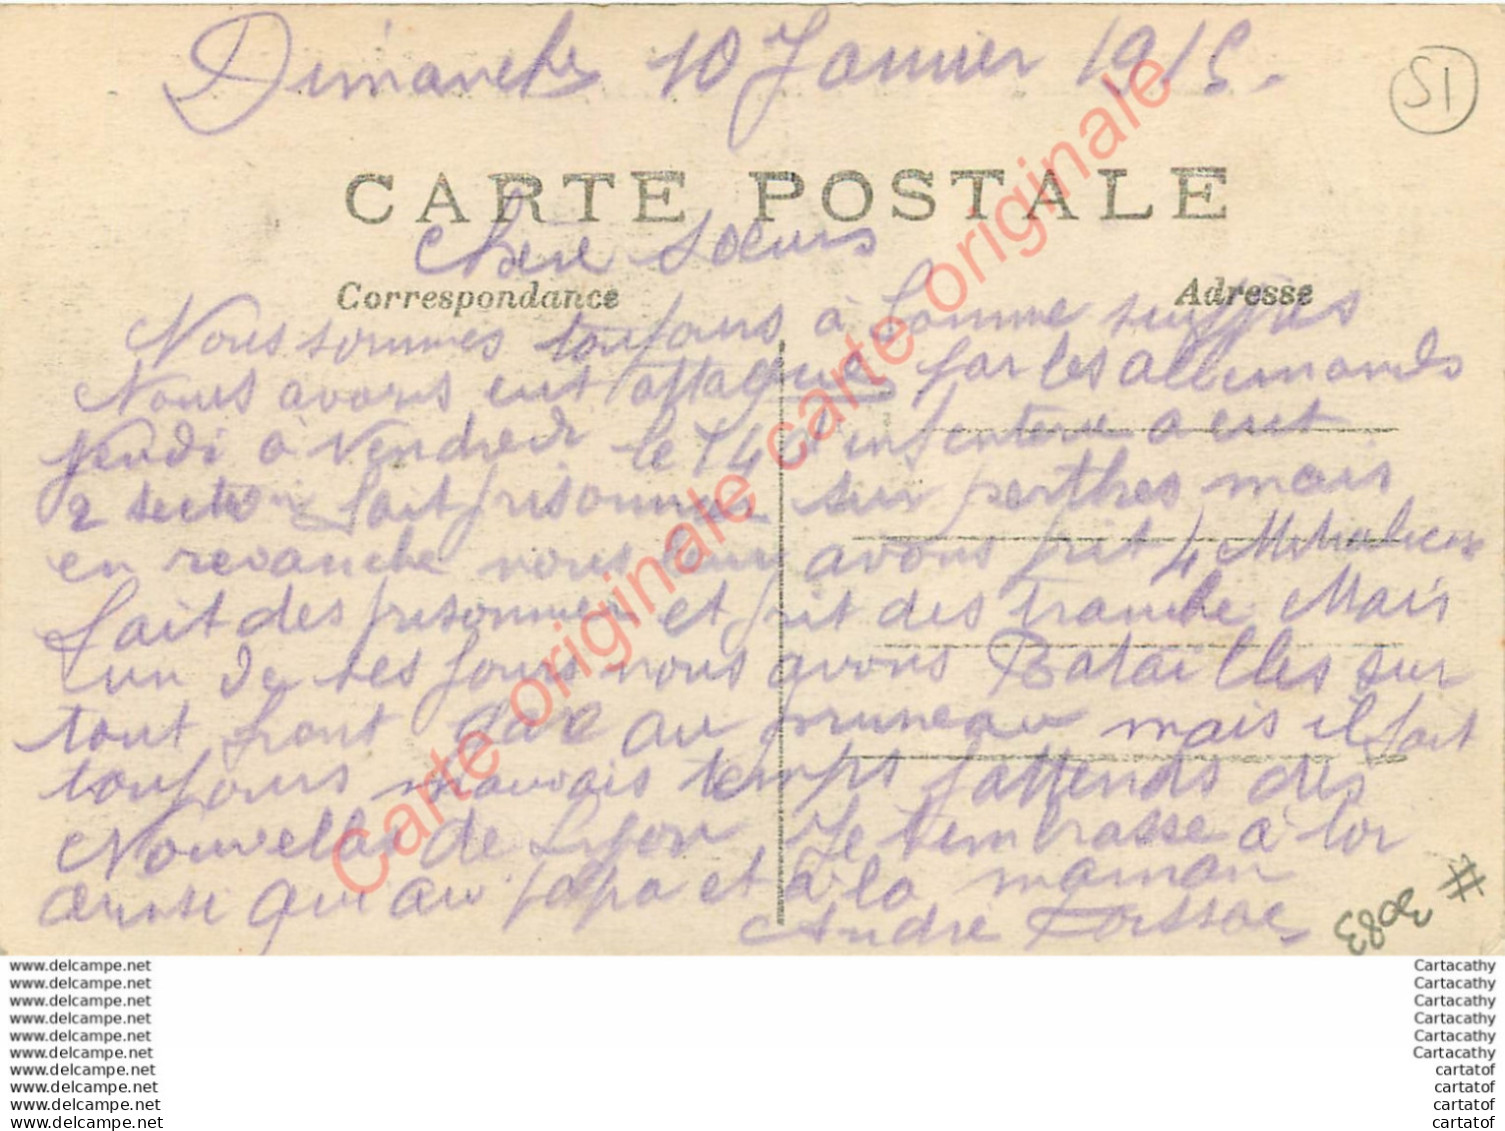 Dimanche 10 Janvier 1915.
51
CARTE POSTALE
Chère Soeurs
Correspondance
Adresse
Nous sommes toujours à Somme suippes
Nous avons eut attaqués par les allemands
jeudi à Vendredi le 140 d'infenterie a eut
2 section fait prisonnier sur perthes mais
en revanche nous leur avons prit 4 Mitralieuse
fait des prisonnier et prit des tranche Mais
un de ses jours nous avons Batailles sur
tout front gare au pruneau mais il fait
toujours mauvais temps j'attends des
Nouvelles de Lyon Je t'embrasse à toi
ainsi que au papa et à la maman
André
# 3083
Carte originale carte originale Carte originale
www.delcampe.net
www.delcampe.net
www.delcampe.net
www.delcampe.net
www.delcampe.net
www.delcampe.net
www.delcampe.net
www.delcampe.net
www.delcampe.net
www.delcampe.net
Cartacathy
Cartacathy
Cartacathy
Cartacathy
Cartacathy
Cartacathy
cartatof
cartatof
cartatof
cartatof